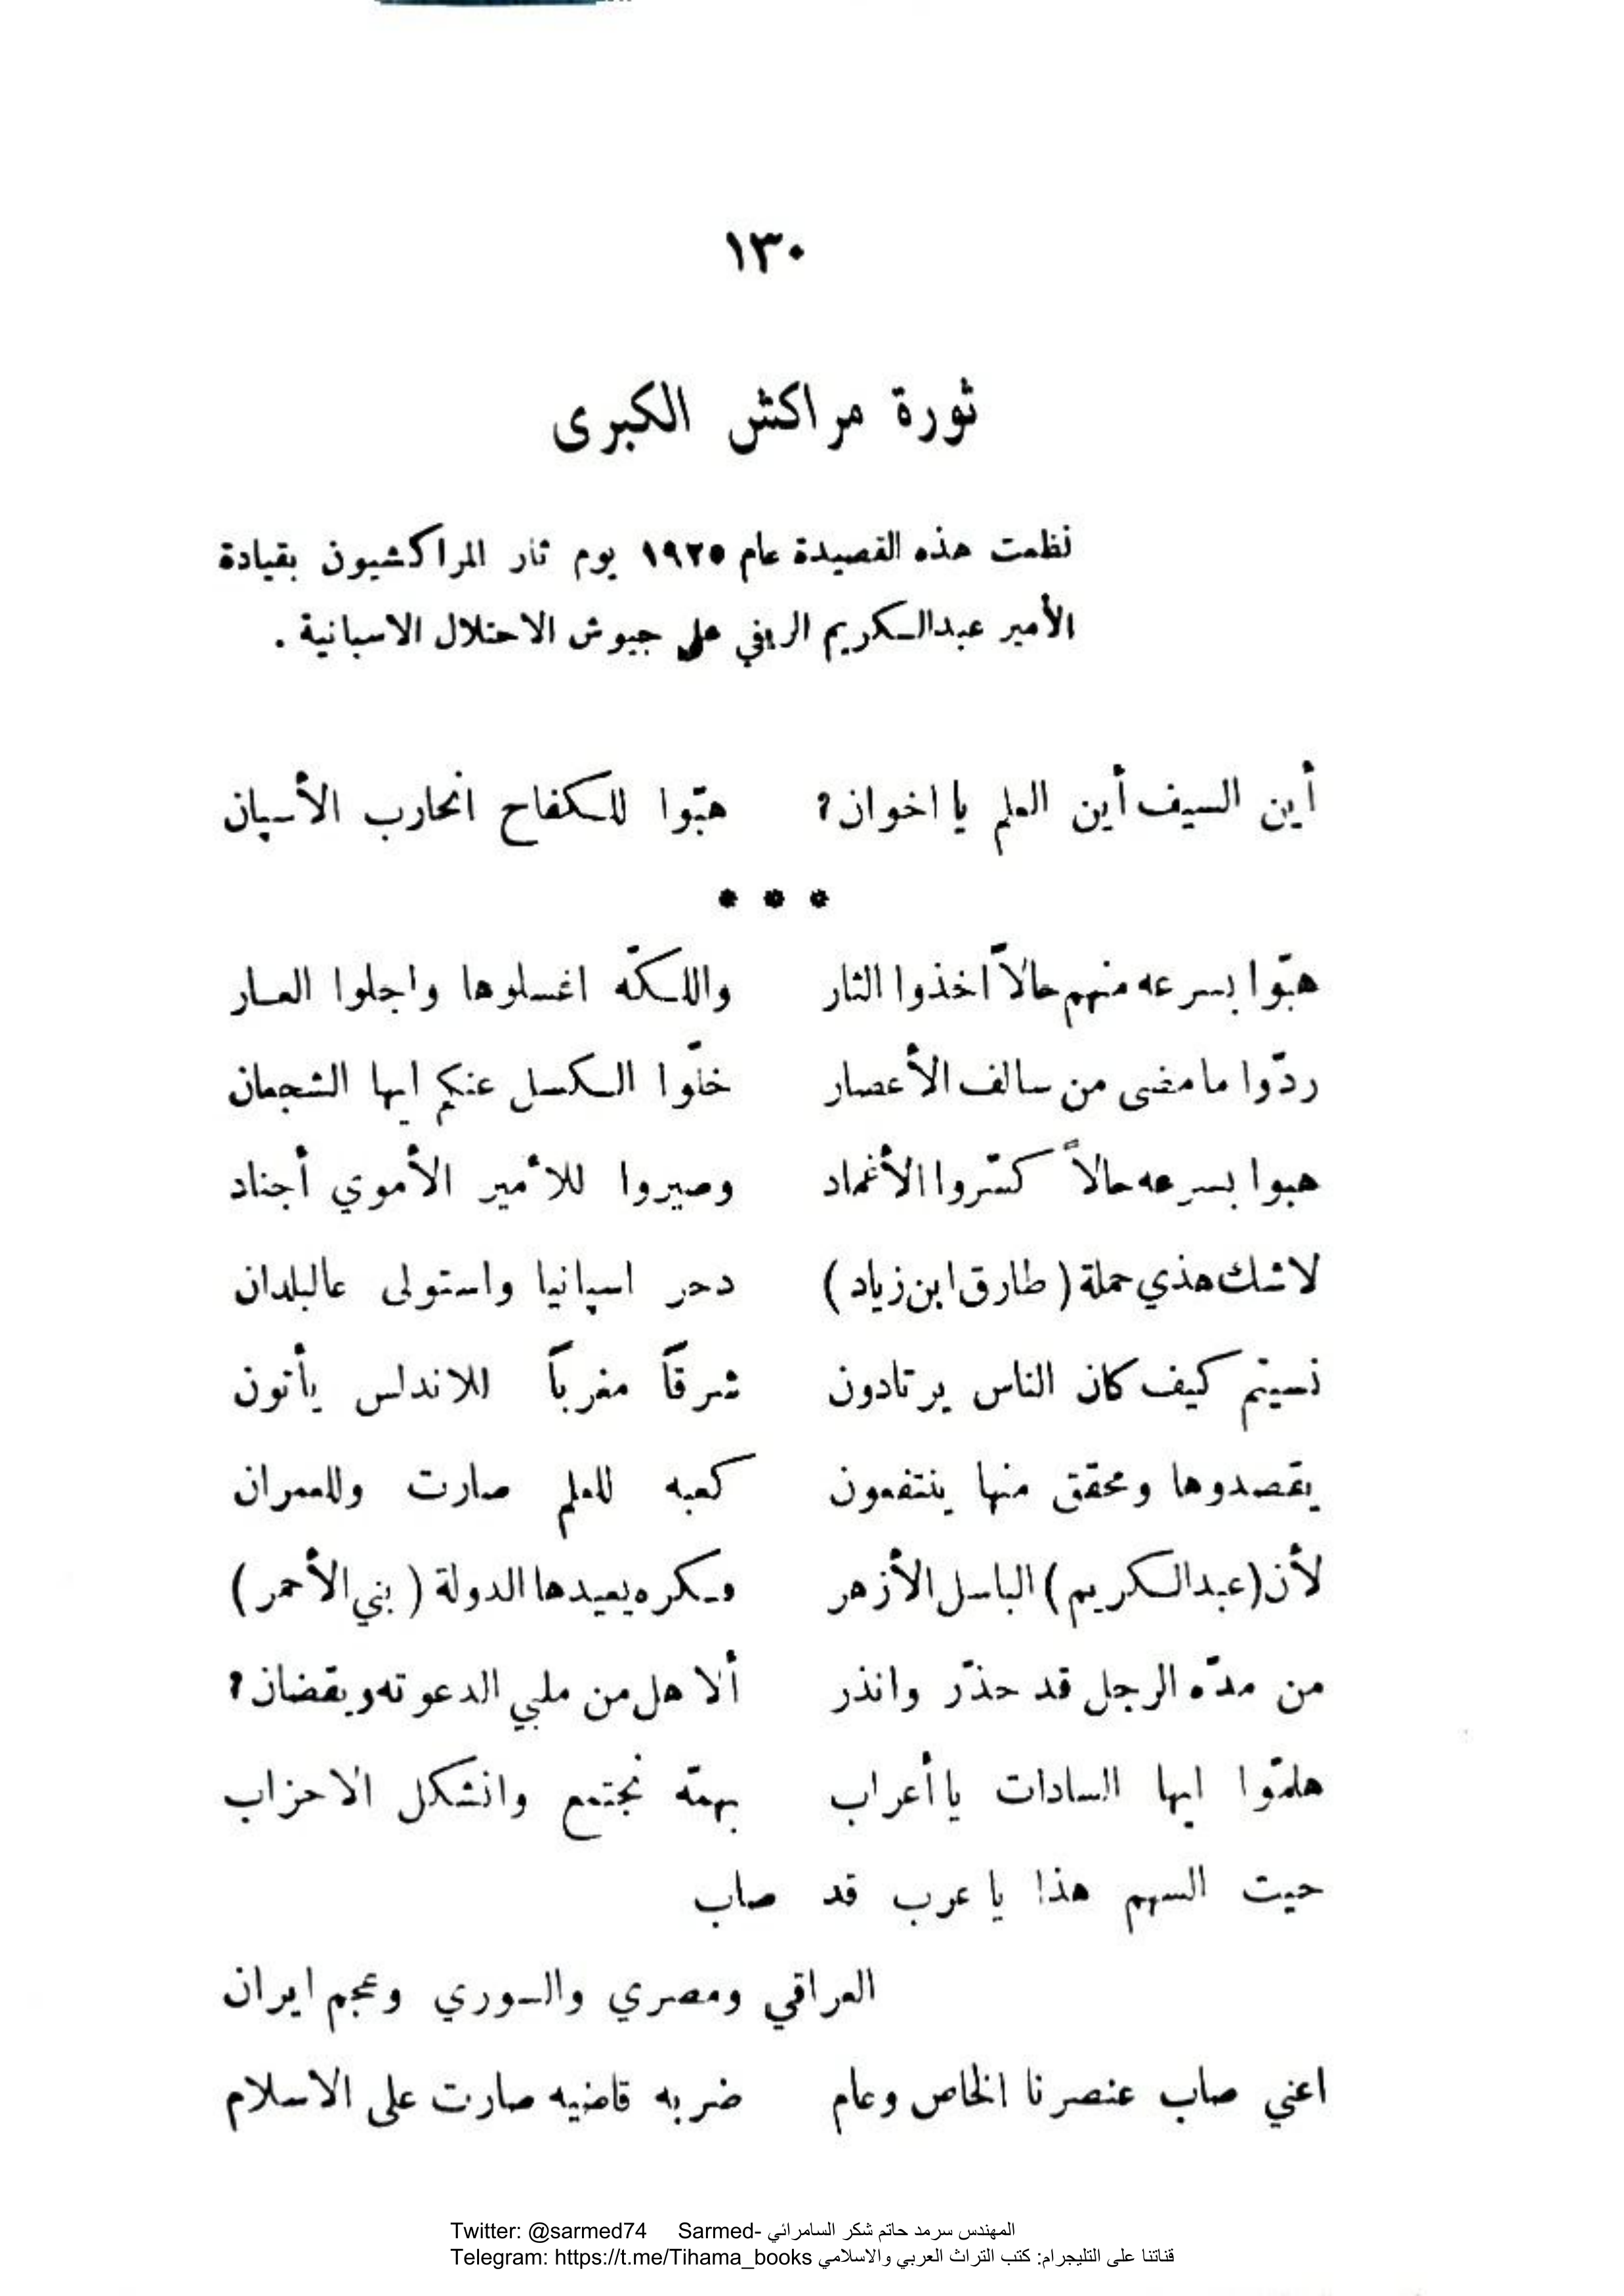 ١٣٠
ثورة مراكش الكبرى
نظمت هذه القصيدة عام ١٩٢٥ يوم ثار المراكشيون بقيادة
الأمير عبدالكريم الريفي على جيوش الاحتلال الاسبانية .
أين السيف أين العلم يا اخوان؟ هبّوا للكفاح انحارب الأسپان
* * *
هبّوا بسرعه منهم حالاً اخذوا الثار واللكّه اغسلوها واجلوا العار
ردّوا ما مضى من سالف الأعصار خلّوا الكسل عنكم ايها الشجعان
هبوا بسرعه حالاً كسّروا الأغماد وصيروا للأمير الأموي أجناد
لا شك هذي حملة ( طارق ابن زياد ) دحر اسپانيا واستولى عالبلدان
نسيتم كيف كان الناس يرتادون شرقاً مغرباً للاندلس يأتون
يقصدوها ومحقق منها ينتفعون كعبه للعلم صارت وللعمران
لأن (عبدالكريم) الباسل الأزهر وـكره يعيدها الدولة ( بني الأحمر )
من مدّه الرجل قد حذّر وانذر ألا هل من ملبي الدعوته ويقضان؟
هلمّوا ايها السادات يا أعراب بهمّه نجتمع وانشكل الاحزاب
حيت السهم هذا يا عرب قد صاب
العراقي ومصري والسوري وعجم ايران
اعني صاب عنصرنا الخاص وعام ضربه قاضيه صارت على الاسلام
Twitter: @sarmed74 Sarmed- المهندس سرمد حاتم شكر السامرائي
Telegram: https://t.me/Tihama_books قناتنا على التليجرام: كتب التراث العربي والاسلامي